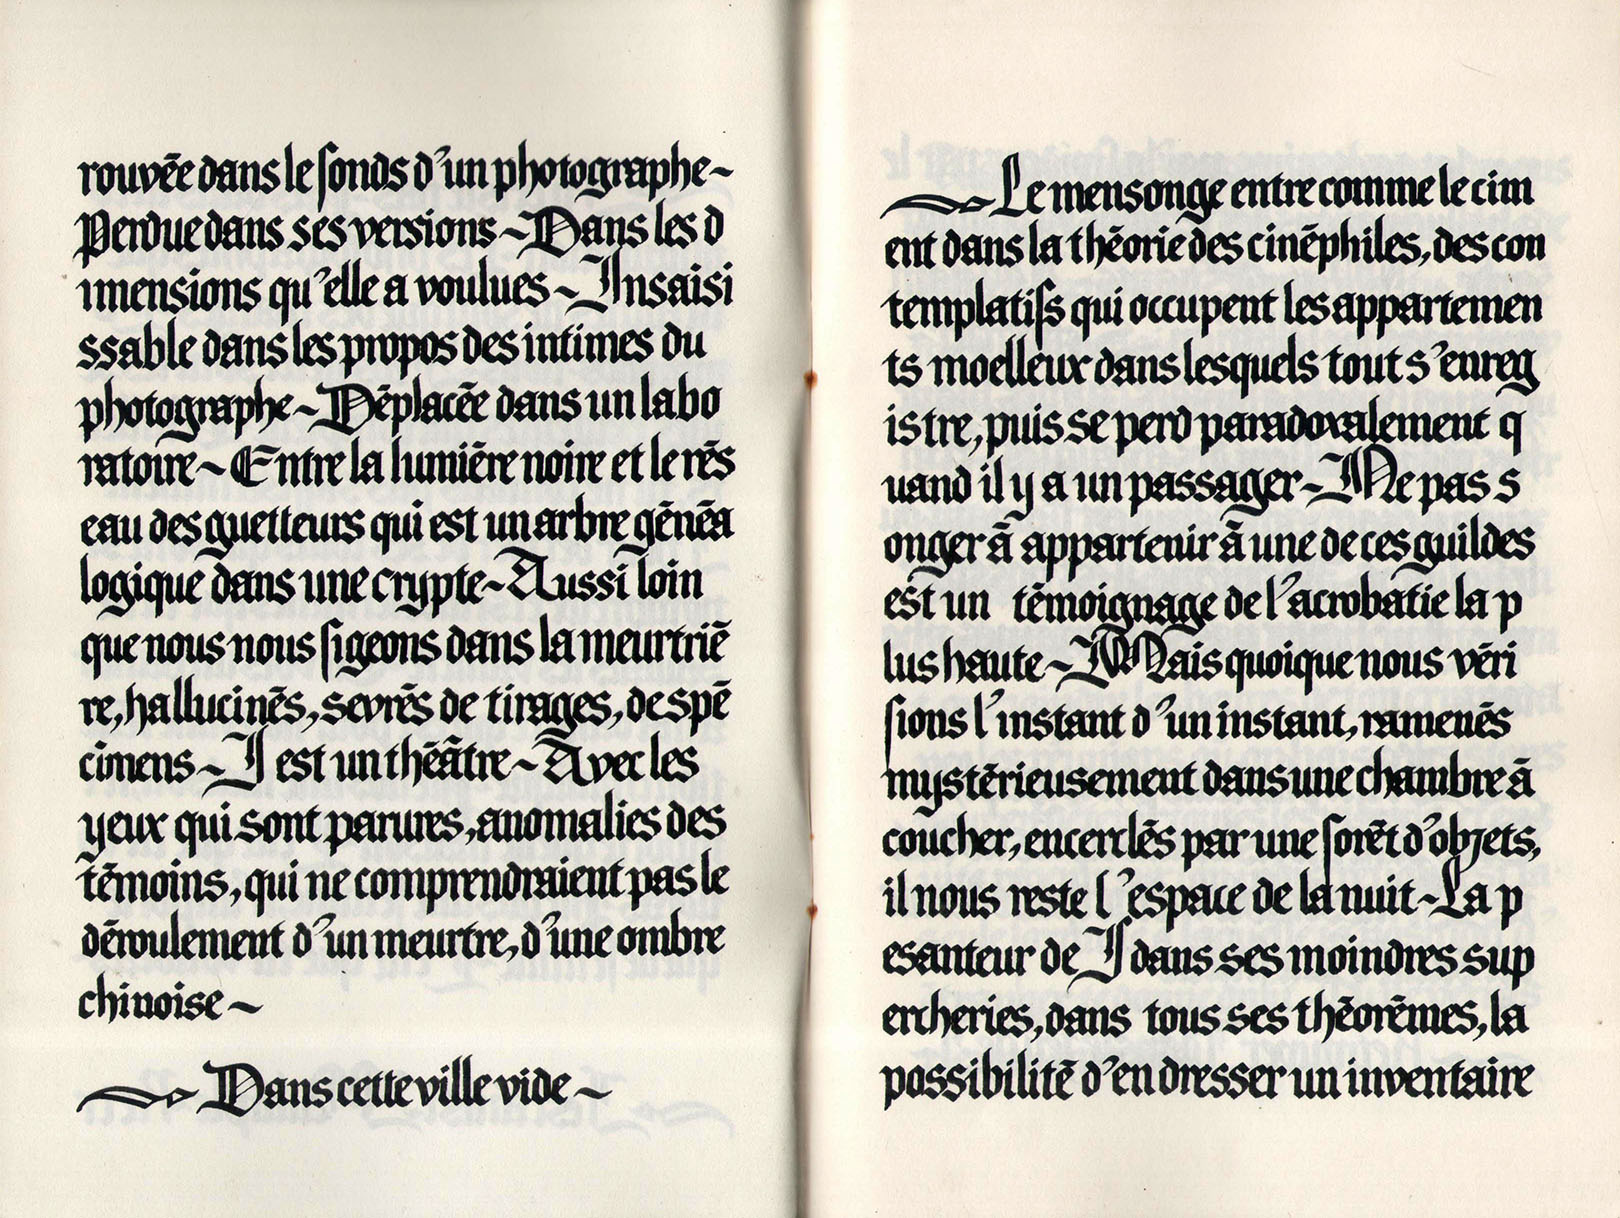 rouvēe dans le fonds d'un photographe~
Perdue dans ses versions ~ Dans les d
imensions qu'elle a voulues ~ Insaisi
ssable dans les propos des intimes du
photographe ~ Dēplacēe dans un labo
ratoire ~ Entre la lumiēre noire et le rēs
eau des guetteurs qui est un arbre gēnēa
logique dans une crypte ~ Aussi loin
que nous nous figeons dans la meurtriē
re, hallucinēs, sevrēs de tirages, de spē
cimens ~ I est un thēātre ~ Avec les
yeux qui sont parures, anomalies des
tēmoins, qui ne comprendraient pas le
dēroulement d'un meurtre, d'une ombre
chinoise ~
~ Dans cette ville vide ~
~ Le mensonge entre comme le cim
ent dans la thēorie des cinēphiles, des con
templatifs qui occupent les appartemen
ts moelleux dans lesquels tout s'enreg
istre, puis se perd paradoxalement q
uand il y a un passager ~ Ne pas s
onger ā appartenir ā une de ces guildes
est un tēmoignage de l'acrobatie la p
lus haute ~ Mais quoique nous vēri
fions l'instant d'un instant, ramenēs
mystērieusement dans une chambre ā
coucher, encerclēs par une forēt d'objets,
il nous reste l'espace de la nuit ~ La p
esanteur de I dans ses moindres sup
ercheries, dans tous ses thēorēmes, la
possibilitē d'en dresser un inventaire